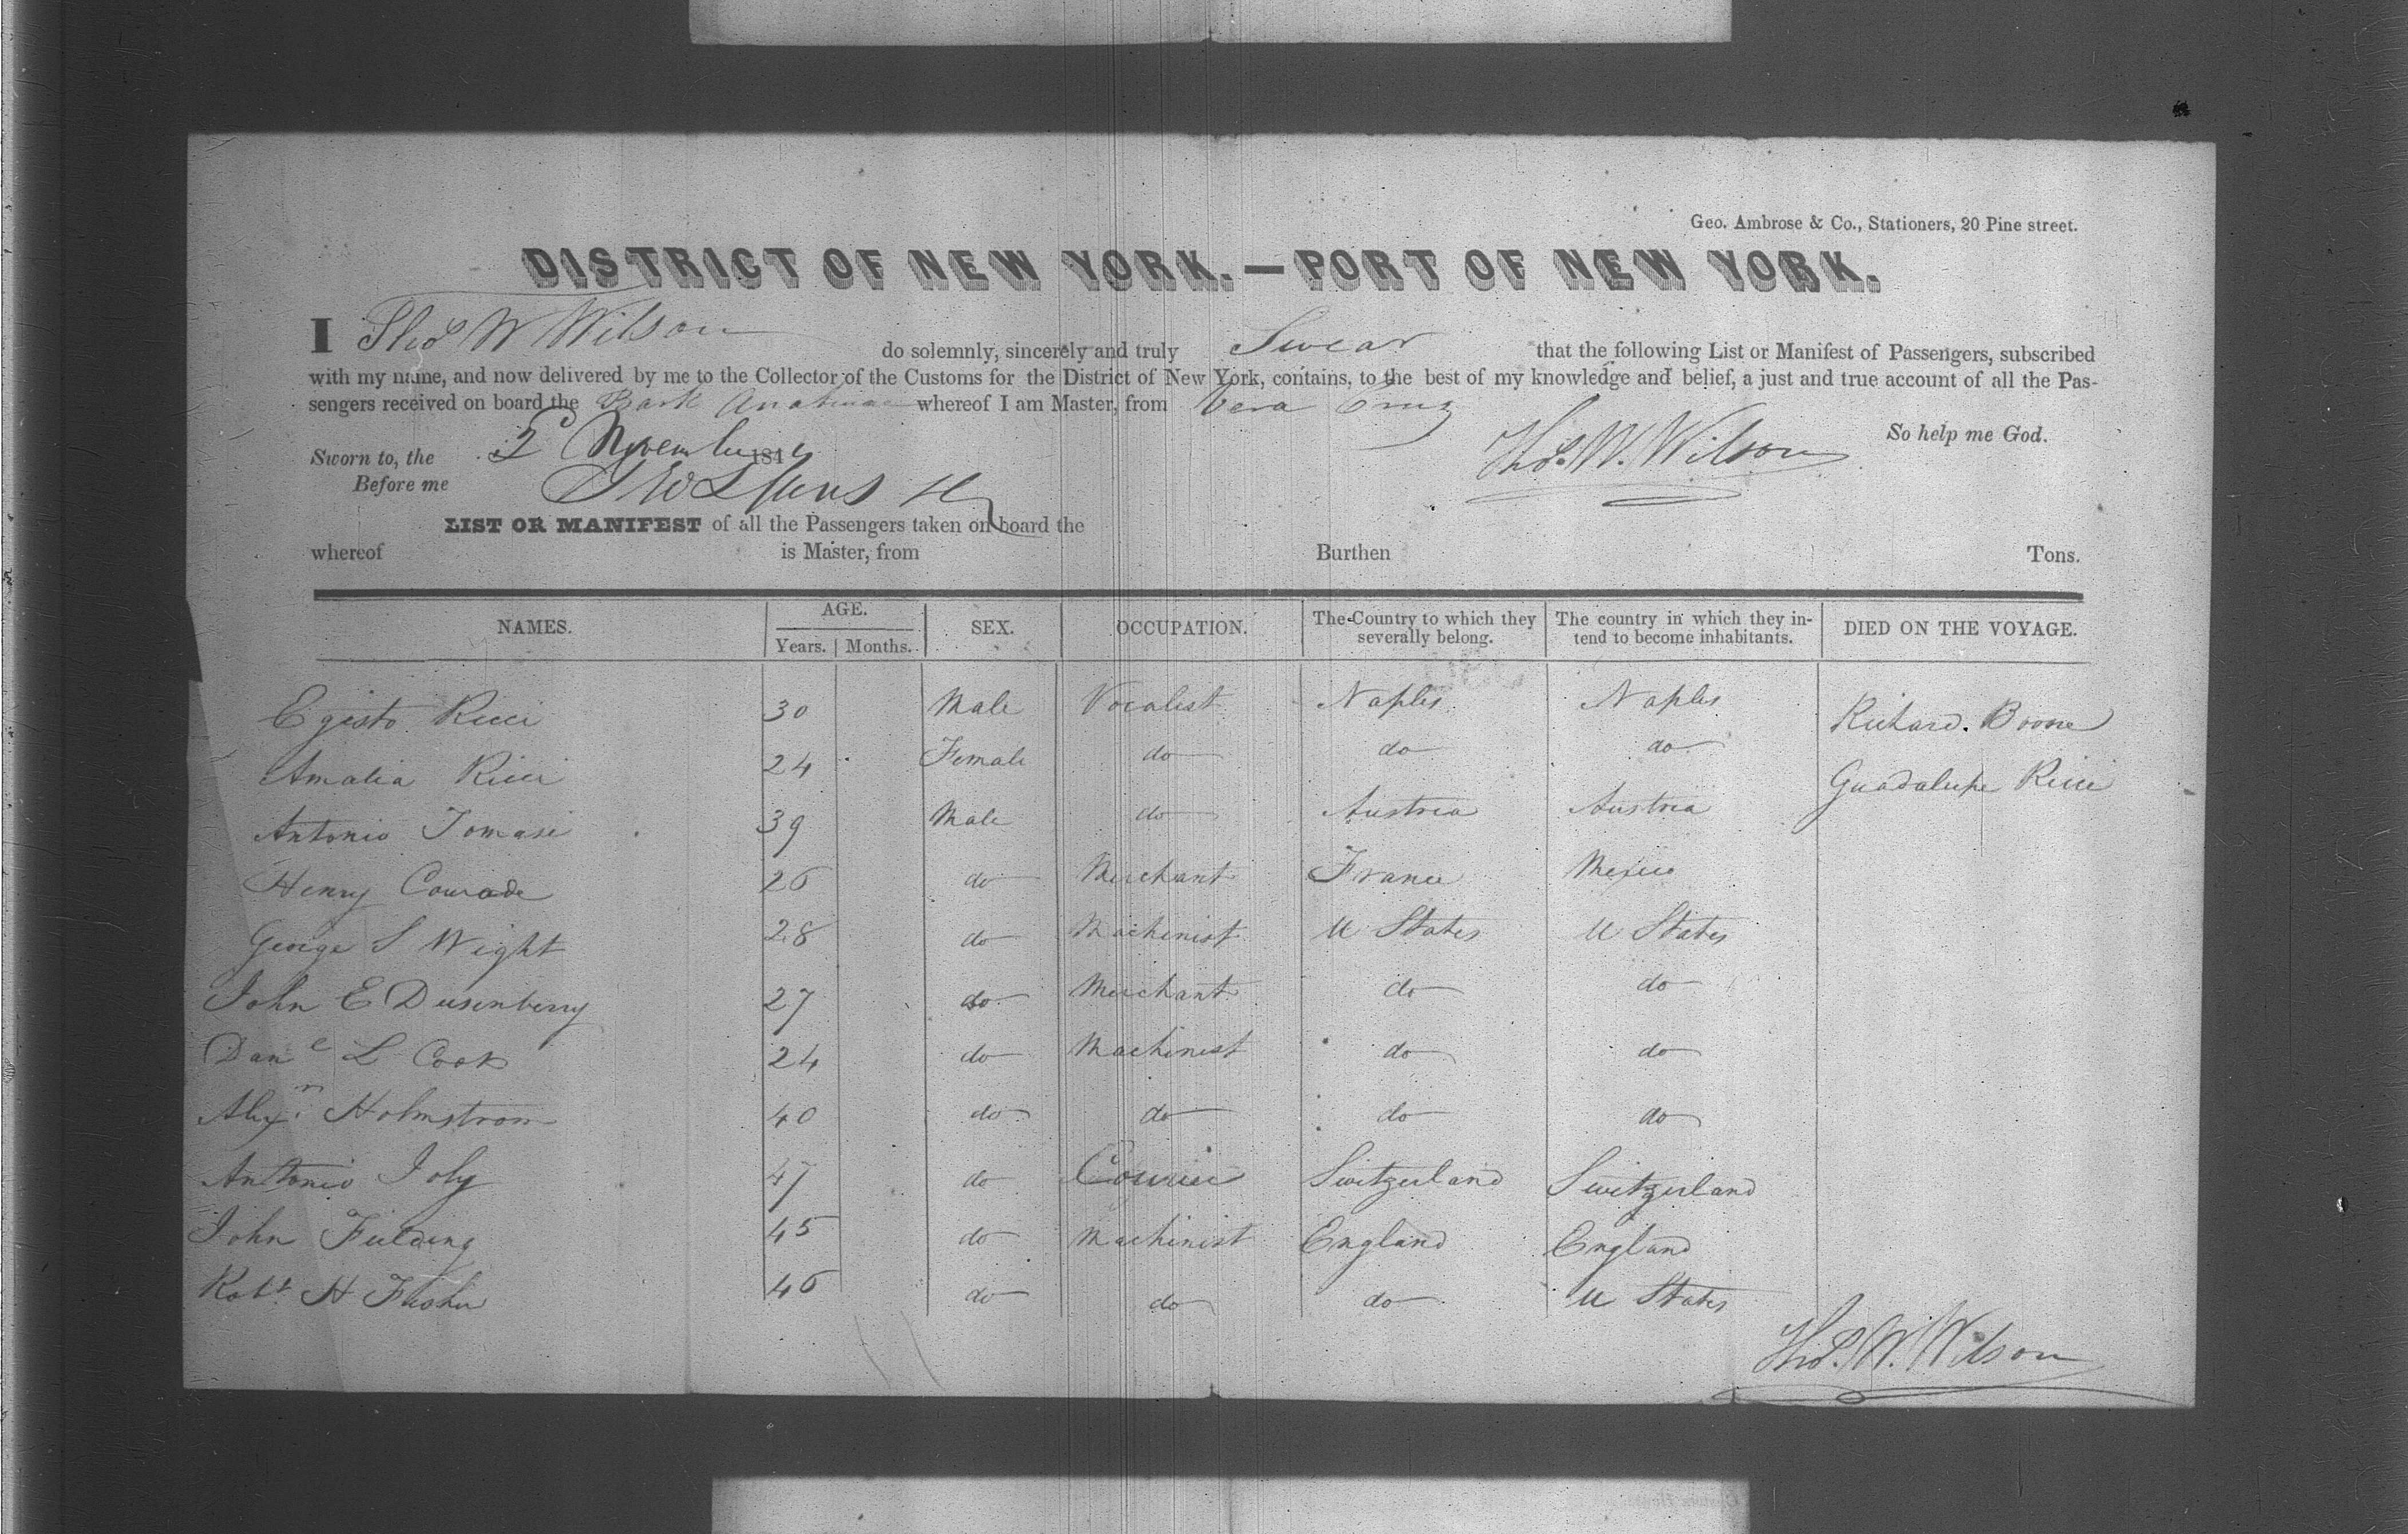 Geo. Ambrose & Co., Stationers, 20 Pine street.
DISTRICT OF NEW YORK.—PORT OF NEW YORK.
I Thos W Wilson do solemnly, sincerely and truly Swear that the following List or Manifest of Passengers, subscribed
with my name, and now delivered by me to the Collector of the Customs for the District of New York, contains, to the best of my knowledge and belief, a just and true account of all the Pas-
sengers received on board the Bark whereof I am Master, from Vera Cruz
So help me God.
Sworn to, the 2d November 184
Thos. W. Wilson
Before me
LIST OR MANIFEST of all the Passengers taken on board the
whereof is Master, from Burthen Tons.
NAMES. AGE. Years. Months. SEX. OCCUPATION. The Country to which they severally belong. The country in which they in-tend to become inhabitants. DIED ON THE VOYAGE.
Egisto Ricci 30 Male Vocalist Naples Naples Richard. Boone
Amalia Ricci 24 Female do do do Guadalupe Ricci
Antonio Tomasi 39 Male do Austria Austria
Henry Courade 26 do Merchant France Mexico
George S Wight 28 do Machinist U States U States
John E Dusenberry 27 do Merchant do do
Danl L Cook 24 do Machinist do do
Alexr Holmstrom 40 do do do do
Antonio Joly 47 do Courier Switzerland Switzerland
John Fielding 45 do Machinist England England
Robt H 46 do do do U States
Thos. W. Wilson